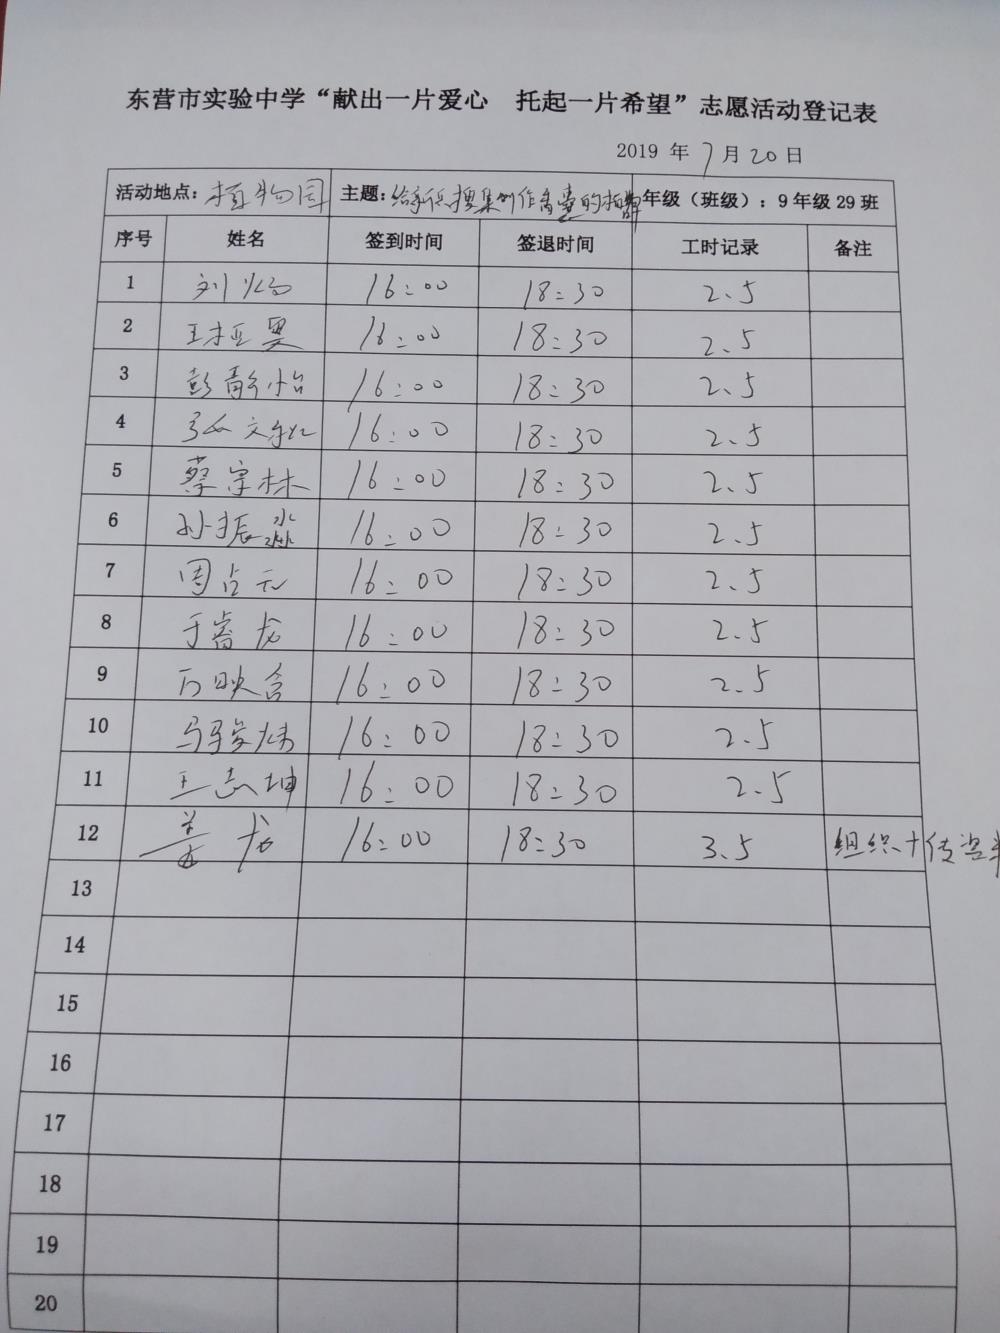 东营市实验中学“献出一片爱心 托起一片希望”志愿活动登记表
2019 年 7月 20日
活动地点：植物园 主题： 年级（班级）：9年级29班
序号 姓名 签到时间 签退时间 工时记录 备注
1 刘 16:00 18:30 2.5
2 王 16:00 18:30 2.5
3 彭静怡 16:00 18:30 2.5
4 16:00 18:30 2.5
5 蔡宗林 16:00 18:30 2.5
6 孙振淼 16:00 18:30 2.5
7 周占元 16:00 18:30 2.5
8 于睿龙 16:00 18:30 2.5
9 映含 16:00 18:30 2.5
10 马骏炜 16:00 18:30 2.5
11 王志坤 16:00 18:30 2.5
12 姜龙 16:00 18:30 3.5 组织+传资料
13
14
15
16
17
18
19
20